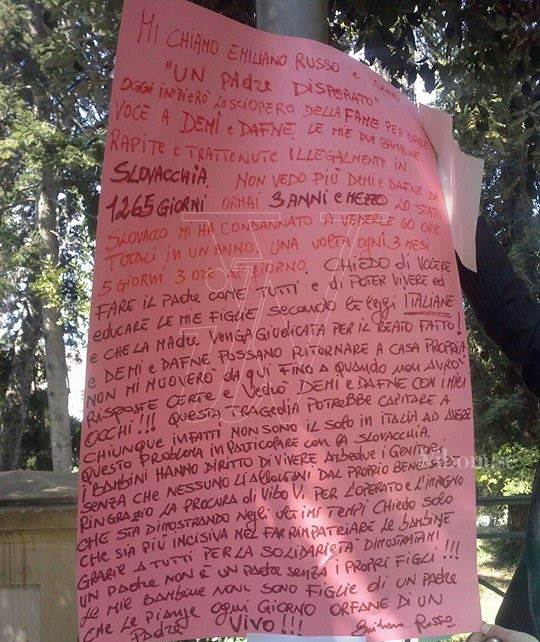 MI CHIAMO EMILIANO RUSSO E SONO
"UN PADRE DISPERATO"
OGGI INIZIERÒ LO SCIOPERO DELLA FAME PER DARE
VOCE A DEMI e DAFNE LE MIE DUE BAMBINE
RAPITE e TRATTENUTE ILLEGALMENTE IN
SLOVACCHIA. NON VEDO PIÙ DEMI e DAFNE DA
1265 GIORNI ORMAI 3 ANNI e MEZZO LO STATO
SLOVACCO MI HA CONDANNATO A VEDERLE 60 ORE
TOTALI IN UN ANNO. UNA VOLTA OGNI 3 MESI
5 GIORNI 3 ORE AL GIORNO. CHIEDO di VOLERE
FARE IL PADRE COME TUTTI e di POTER VIVERE ed
educare LE MIE FIGLIE SECONDO le leggi ITALIANE
e CHE LA MADRE VENGA GIUDICATA PER IL REATO FATTO!
e DEMI e DAFNE POSSANO RITORNARE A CASA PROPRIA!
NON MI MUOVERÒ DA QUI FINO A QUANDO NON AVRÒ
RISPOSTE CERTE e vedrò DEMI e DAFNE CON I MIEI
OCCHI!!! QUESTA TRAGEDIA POTREBBE CAPITARE A
CHIUNQUE INFATTI NON SONO IL SOLO IN ITALIA AD AVERE
QUESTO PROBLEMA IN PARTICOLARE CON LA SLOVACCHIA.
I BAMBINI HANNO DIRITTO DI VIVERE AMBEDUE I GENITORI
SENZA CHE NESSUNO LI ALLONTANI DAL PROPRIO BENE
RINGRAZIO LA PROCURA DI VIBO V. PER L'OPERATO E L'IMPEGNO
CHE STA DIMOSTRANDO NEGLI ULTIMI TEMPI CHIEDO SOLO
CHE SIA PIÙ INCISIVA NEL FAR RIMPATRIARE LE BAMBINE
GRAZIE A TUTTI PER LA SOLIDARIETÀ DIMOSTRATAMI
UN PADRE NON È UN PADRE SENZA I PROPRI FIGLI!!!
Le MIE BAMBINE NON SONO FIGLIE di UN PADRE
CHE LE PIANGE OGNI GIORNO ORFANE DI UN
PADRE VIVO!!! Emiliano Russo